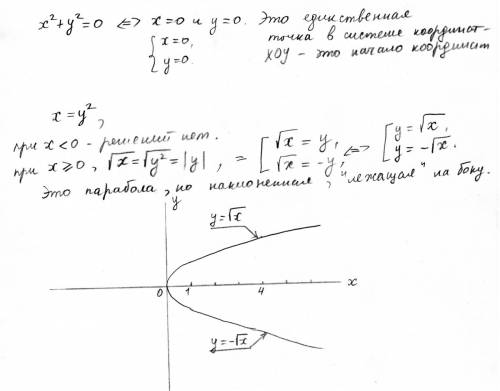 x²+y²=0 <=> x=0 и y=0. Это единственная
{ x=0, точка в системе координат-
{ y=0. XOY - это начало координат
x=y²,
при x<0 - решений нет.
при x≥0, √x=√y²=|y|, = [ √x = y, √x = -y, <=> [ y=√x, y=-√x.
Это парабола, но наклоненная, "лежащая" на боку.
y
y=√x
0 1 4 x
y=-√x